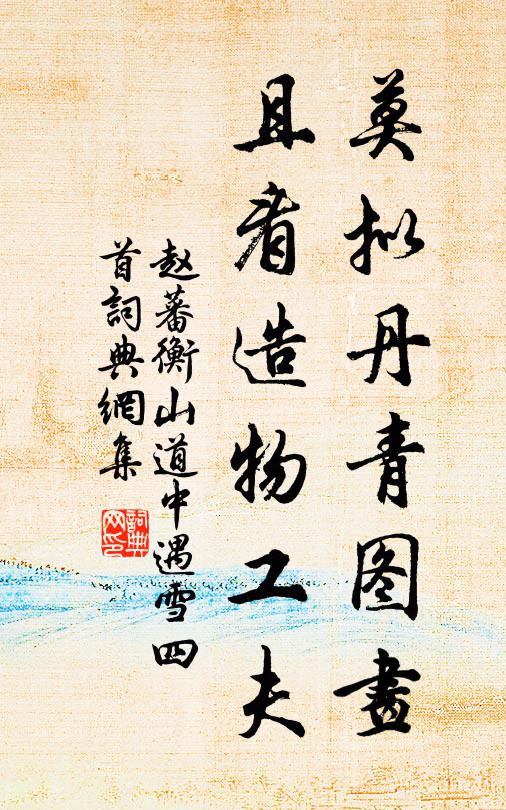 莫拟丹青图畫
且看造物工夫
赵蕃衡山道中遇雪四
首詞典網集
詞典
网印